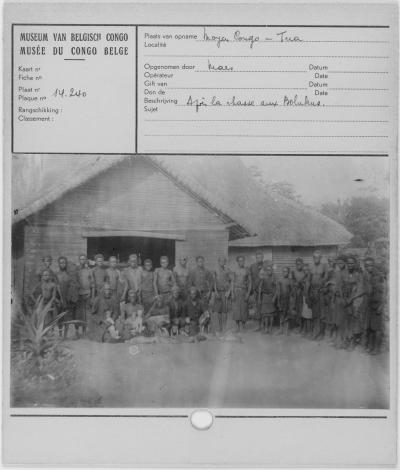 MUSEUM VAN BELGISCH CONGO
MUSÉE DU CONGO BELGE
Kaart nʳ
Fiche nº
Plaat nʳ
Plaque nº 14.240
Rangschikking :
Classement :
Plaats van opname Moyen Congo -
Localité
Opgenomen door Maes Datum
Opérateur Date
Gift van Datum
Don de Date
Beschrijving la chasse aux
Sujet